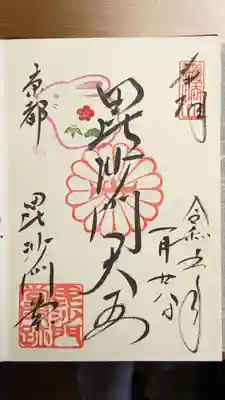 奉拝
令和五年
一月廿八日
毘沙門天王
京都
毘沙門堂
毘沙門
堂門跡